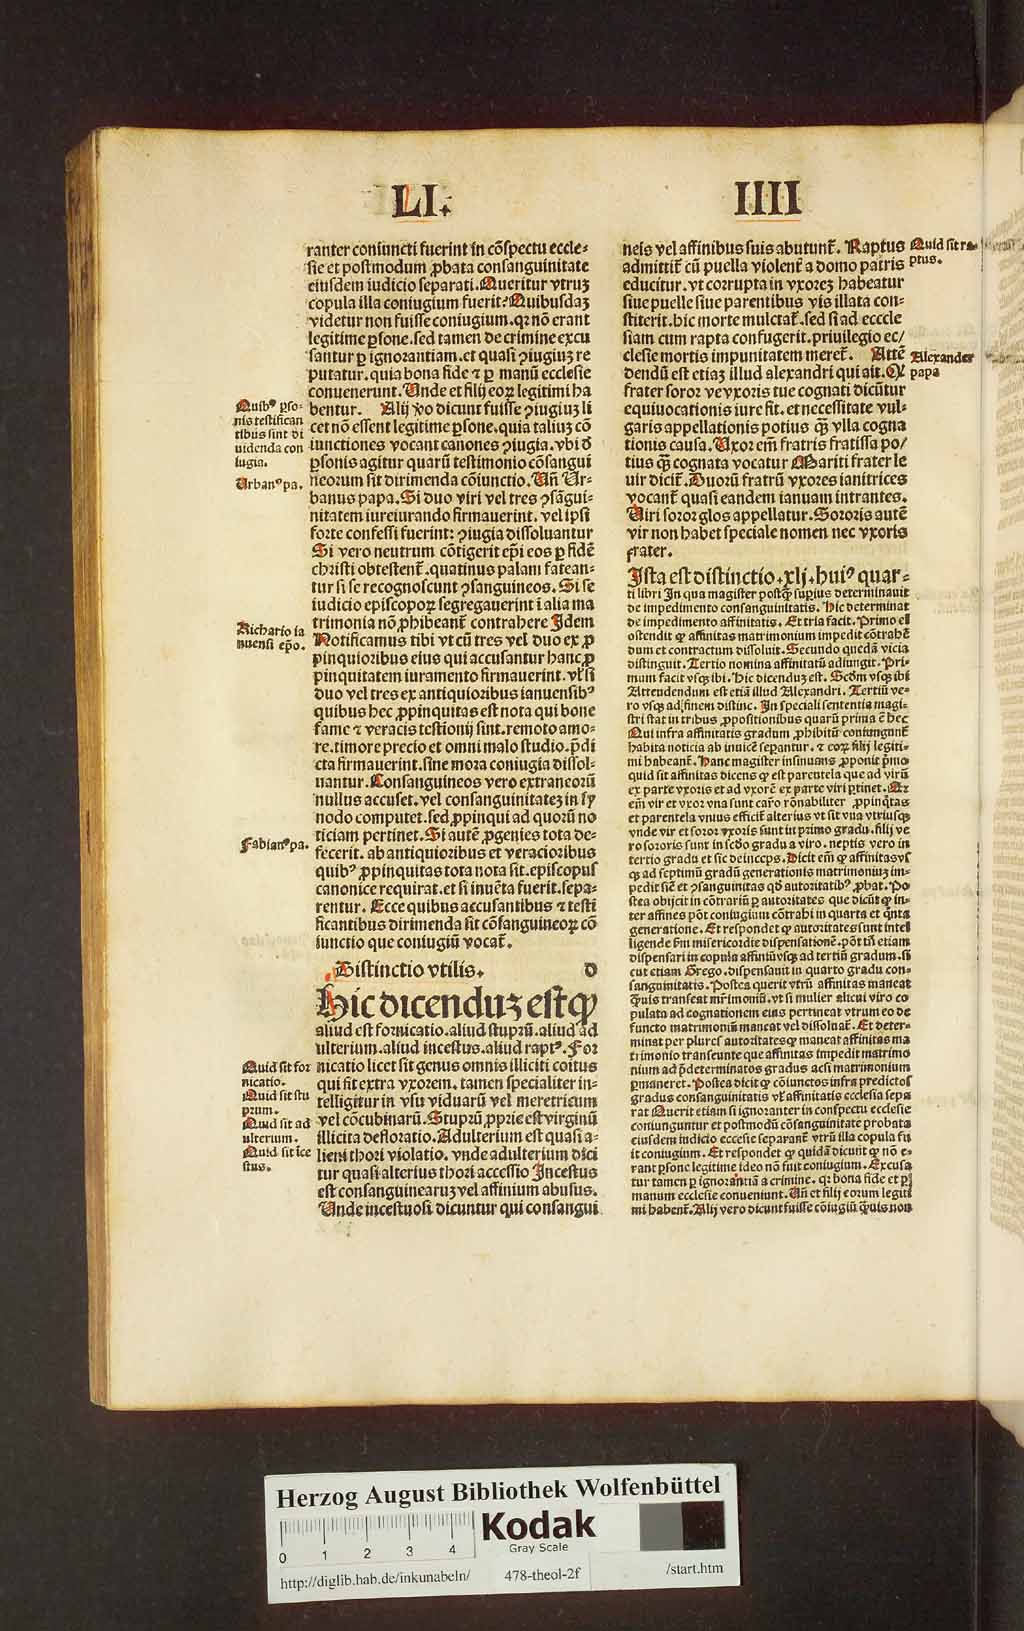 LI.
IIII
ranter coniuncti fuerint in cōspectu eccle⸗
sie et postmodum ꝓbata consanguinitate
eiusdem iudicio separati. Queritur vtruꝫ
copula illa coniugium fuerit? Quibusdaꝫ
videtur non fuisse coniugium. qꝛ nō erant
legitime ꝑsone. sed tamen de crimine excu
santur ꝑ ignorantiam. et quasi ꝯiugiuꝫ re
putatur. quia bona fide ⁊ ꝑ manū ecclesie
conuenerunt. Unde et filij eoꝝ legitimi ha
bentur. Alij ꝟo dicunt fuisse ꝯiugiuꝫ li
cet nō essent legitime ꝑsone. quia taliuꝫ cō
iunctiones vocant canones ꝯiugia. vbi ð
ꝑsonis agitur quarū testimonio cōsangui
neorum sit dirimenda cōiunctio. Uñ Ur⸗
banus papa. Si duo viri vel tres ꝯsāgui⸗
nitatem iureiurando firmauerint. vel ipsi
forte confessi fuerint: ꝯiugia dissoluantur
Si vero neutrum cōtigerit ep̄i eos ꝑ fidē
christi obtestent̄. quatinus palam fatean⸗
tur si se recognoscunt ꝯsanguineos. Si se
iudicio episcopoꝝ segregauerint ī alia ma
trimonia nō ꝓhibeant̄ contrahere Idem
Notificamus tibi vt cū tres vel duo ex ꝓ
pinquioribus eius qui accusantur hanc ꝓ
pinquitatem iuramento firmauerint. vl̄ si
duo vel tres ex antiquioribus ianuensibꝰ
quibus hec ꝓpinquitas est nota qui bone
fame ⁊ veracis testionij sint. remoto amo⸗
re. timore precio et omni malo studio. p̄di
cta firmauerint. sine mora coniugia dissol⸗
uantur. Consanguineos vero extraneorū
nullus accuset. vel consanguinitateꝫ in sy
nodo computet. sed ꝓpinqui ad quorū no
ticiam pertinet. Si autē ꝓgenies tota de⸗
fecerit. ab antiquioribus et veracioribus
quibꝰ ꝓpinquitas tota nota sit. episcopus
canonice requirat. et si inuēta fuerit. sepa⸗
rentur. Ecce quibus accusantibus ⁊ testi
ficantibus dirimenda sit cōsanguineoꝝ cō
iunctio que coniugiū vocat̄.
Distinctio vtilis. D
Hic dicenduꝫ est ꝙ
aliud est fornicatio. aliud stuprū. aliud ad
ulterium. aliud incestus. aliud raptꝰ. For
nicatio licet sit genus omnis illiciti coitus
qui fit extra vxorem. tamen specialiter in⸗
telligitur in vsu viduarū vel meretricum
vel cōcubinarū. Stuprū ꝓprie est virginū
illicita defloratio. Adulterium est quasi a⸗
lieni thori violatio. vnde adulterium dici
tur quasi alterius thori accessio Incestus
est consanguinearuꝫ vel affinium abusus.
Unde incestuosi dicuntur qui consangui
Quibꝰ ꝑso⸗
nis testifican
tibus sint di
uidenda con
iugia.
Urbanꝰ pa.
Richario ia
nuensi ep̄o.
Fabianꝰ pa.
Quid sit for
nicatio.
Quid sit stu
prum.
Quid sit ad
ulterium.
Quid sit īce
stus.
neis vel affinibus suis abutunt̄. Raptus
admittit̄ cū puella violent̄ a domo patris
educitur. vt corrupta in vxoreꝫ habeatur
siue puelle siue parentibus vis illata con⸗
stiterit. hic morte mulctat̄. sed si ad ecccle
siam cum rapta confugerit. priuilegio ec/
clesie mortis impunitatem meret̄. Attē
dendū est etiaꝫ illud alexandri qui ait. Ꝙ
frater soror ve vxoris tue cognati dicūtur
equiuocationis iure fit. et necessitate vul⸗
garis appellationis potius ꝙ̄ vlla cogna
tionis causa. Uxor em̄ fratris fratissa po/
tius ꝙ̄ cognata vocatur Mariti frater le
uir dicit̄. Duorū fratrū vxores ianitrices
vocant̄ quasi eandem ianuam intrantes.
Uiri soror glos appellatur. Sororis autē
vir non habet speciale nomen nec vxoris
frater.
Quid sit ra⸗
ptus.
Alexander
papa
Ista est distinctio .xlj. huiꝰ quar⸗
ti libri In qua magister postꝙ̄ superius determinauit
de impedimento consanguinitatis. Hic determinat
de impedimento affinitatis. Et tria facit. Primo em̄
ostendit ꝙ affinitas matrimonium impedit cōtrahē
dum et contractum dissoluit. Secundo quedā vicia
distinguit. Tertio nomina affinitatū adiungit. Pri⸗
mum facit vsꝙ ibi. Hic dicenduꝫ est. Scd̄m vsꝙ ibi
Attendendum est etiā illud Alexandri. Tertiū ve⸗
ro vsꝙ ad finem distinc. In speciali sententia magi⸗
stri stat in tribus ꝓpositionibus quarū prima ē hec
Qui infra affinitatis gradum ꝓhibitū coniungunt̄
habita noticia ab inuicē separantur. ⁊ eoꝝ filij legiti⸗
mi habeant̄. Hanc magister insinuans ꝓponit p̄mo
quid sit affinitas dicens ꝙ est parentela que ad virū
ex parte vxoris et ad vxorē ex parte viri ꝑtinet.
em̄ vir et vxor vna sunt caro rōnabiliter ꝓpinqͥtas
et parentela vnius efficit̄ alterius vt sit vna vtriusꝙ
vnde vir et soror vxoris sunt in primo gradu. filij ve
ro sororis sunt in scd̄o gradu a viro. neptis vero in
tertio gradu et sic deinceps. Dicit em̄ ꝙ affinitas vs
ꝙ ad septimū gradū generationis matrimoniuꝫ im⸗
pedit sic̄ et ꝯsanguinitas qd̄ autoritatibꝰ ꝓbat. Po
stea obijcit in cōtrariū ꝑ autoritates que dicūt ꝙ in⸗
ter affines pōt coniugium cōtrahi in quarta et qͥnta
generatione. Et respondet ꝙ autoritates sunt intel
ligende s̄m misericordie dispensationē. pōt tn̄ etiam
dispensari in copula affiniū vsꝙ ad tertiū gradum. si
cut etiam Grego. dispensauit in quarto gradu con⸗
sanguinitatis. Postea querit vtrū affinitas maneat
qͣuis transeat mr̄imoniū. vt si mulier alicui viro co
pulata ad cognationem eius pertineat vtrum eo de
functo matrimoniū maneat vel dissoluat̄. Et deter⸗
minat per plures autoritates ꝙ maneat affinitas ma
trimonio transeunte que affinitas impedit matrimo
nium ad p̄determinatos gradus acsi matrimonium
ꝑmaneret. Postea dicit ꝙ cōiunctos infra predictos
gradus consanguinitatis vl̄ affinitatis ecclesia sepa
rat Querit etiam si ignoranter in conspectu ecclesie
coniunguntur et postmodū cōsanguinitate probata
eiusdem iudicio eccesie separant̄ vtrū illa copula fu
it coniugium. Et respondet ꝙ quidā dicunt ꝙ nō e⸗
rant ꝑsone legitime ideo nō fuit coniugium. Excusa
tur tamen ꝑ ignorantiā a crimine. qꝛ bona fide et ꝑ
manum ecclesie conueniunt. Uñ et filij eorum legiti
mi habent̄. Alij vero dicunt fuisse cōiugiū qͣuis non
Herzog August Bibliothek Wolfenbüttel
0 1 2 3 4
Kodak
Gray Scale
http://diglib.hab.de/inkunabeln/ 478-theol-2f /start.htm